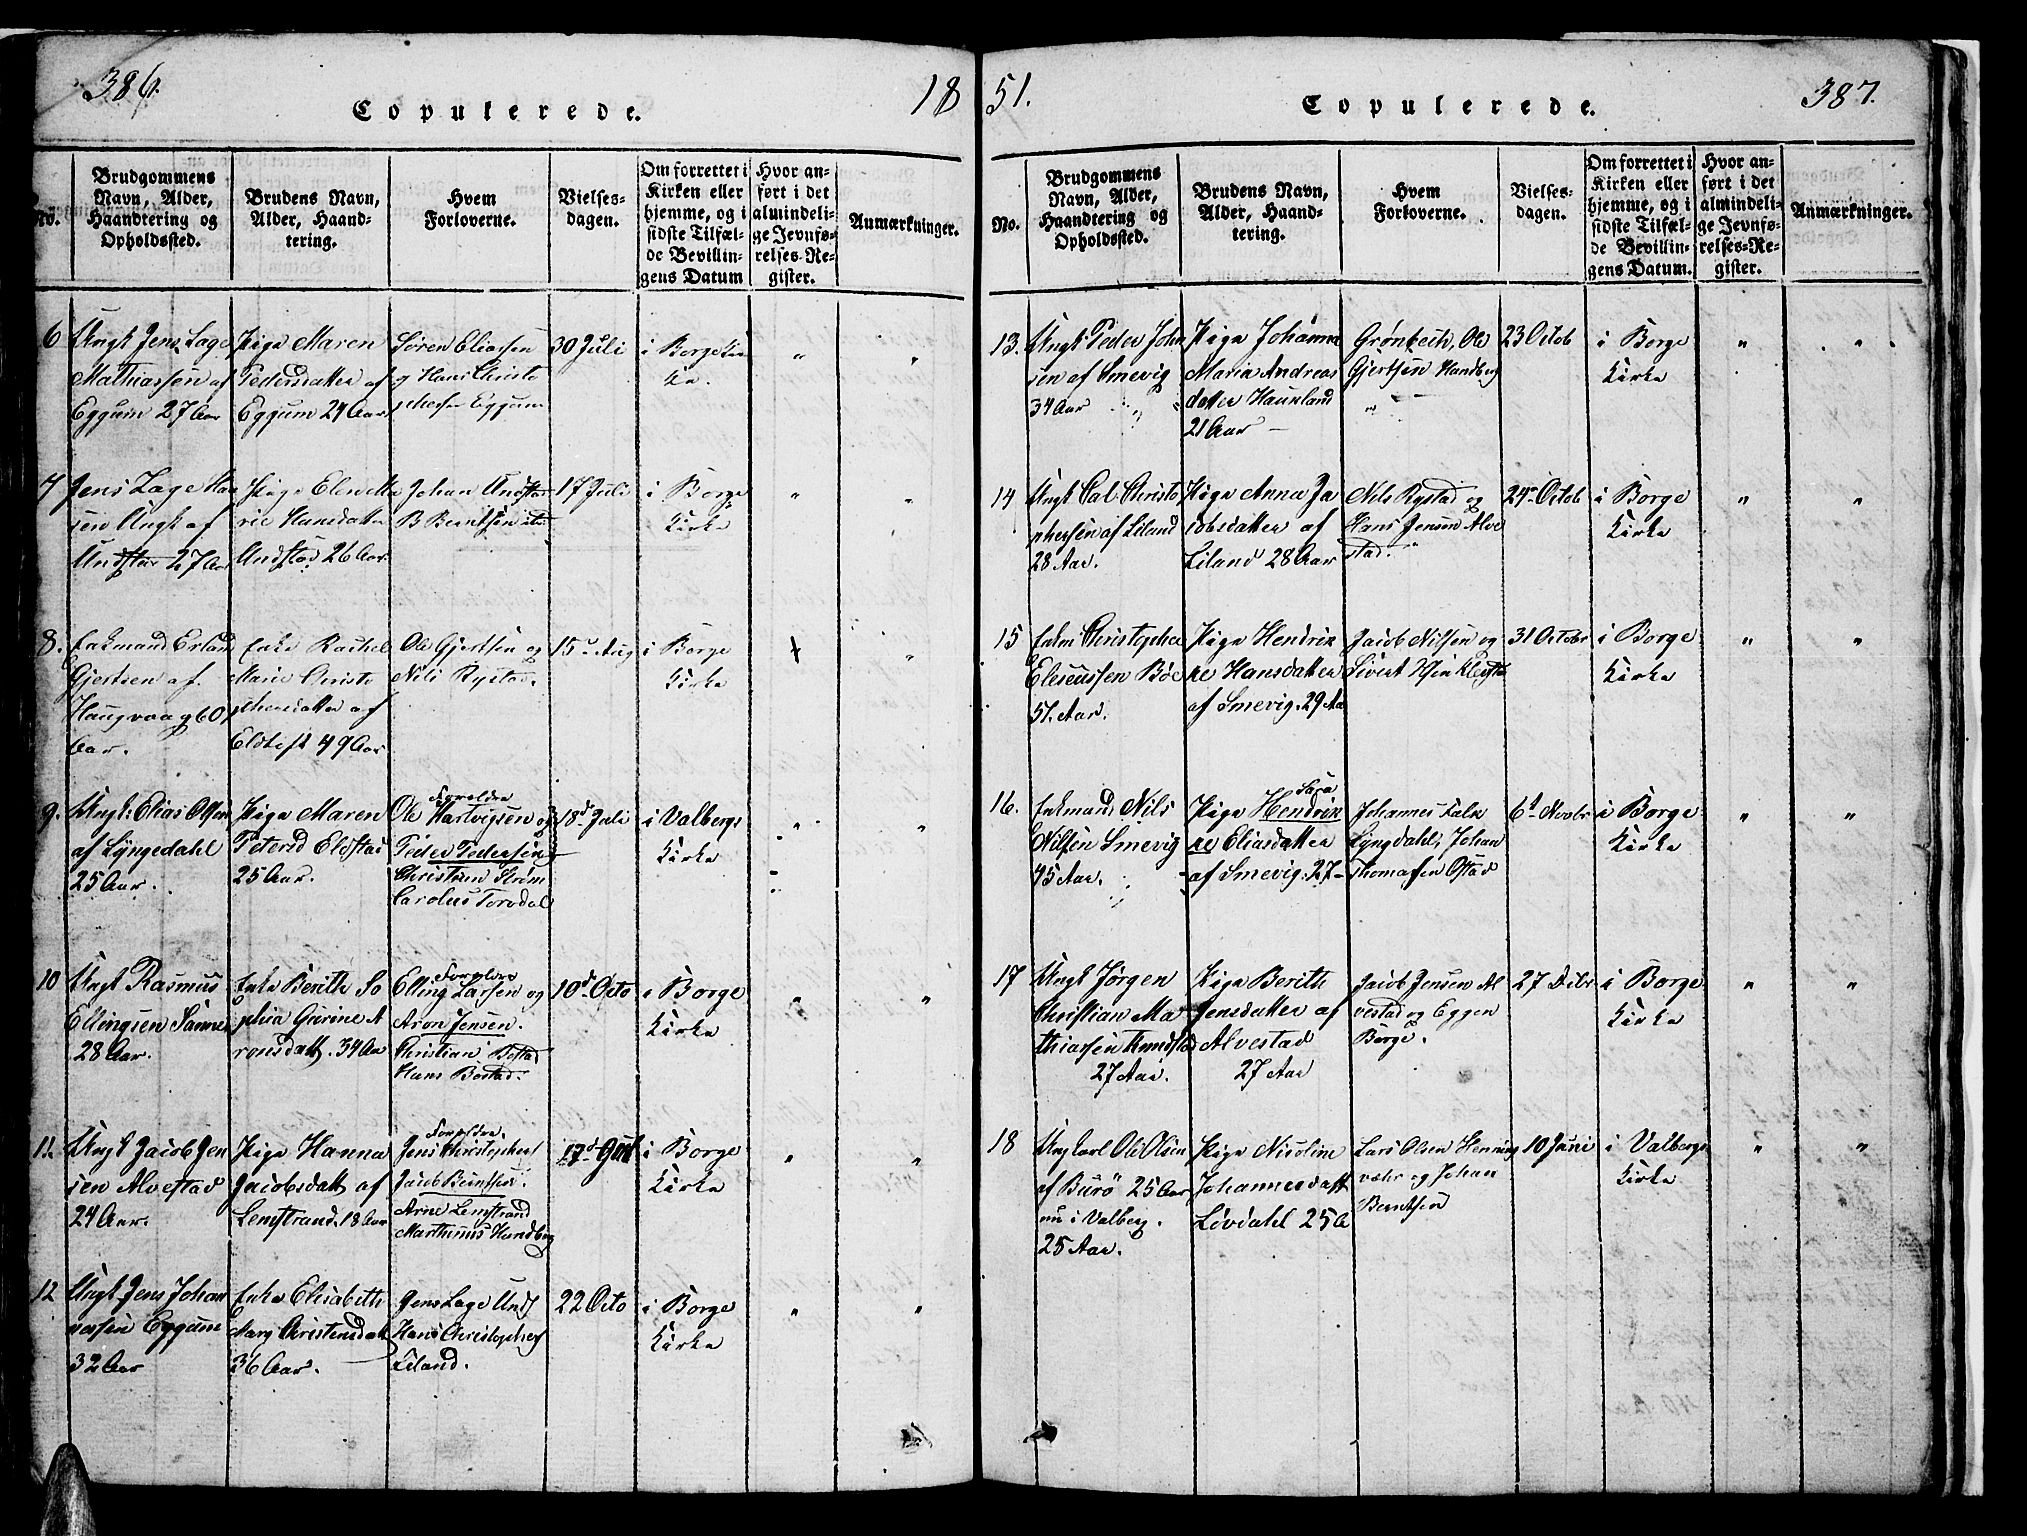 386.
Copulerede.
18
No.
Brudgommens
Navn, Alder,
Haandtering og
Opholdssted.
Brudens Navn,
Alder, Haand-
tering.
Hvem
Forloverne.
Vielses-
dagen.
Om forrettet i
Kirken eller
hjemme, og i
sidste Tilfæl-
de Bevillin-
gens Datum
Hvor an-
ført i det
almindeli-
ge Jevnfø-
relses-Re-
gister.
Anmærkninger.
6
Ungk Jens Lage
Mathiassen af
Eggum 27 Aar
Pige Maren
Pedersdatter af
Eggum 24 Aar
Søren Eliassen
og Hans Christo
phersen Eggum
30 Juli
i Borge
7
Jens Lage Han
sen Ungk af
Undstad 27 Aar
Pige Elen Ma
rie Hansdatter
Undstad 26 Aar
Johan Undstad
B Berntsen
17 Juli
i Borge
Kirke
8.
Enkmand Erland
Gjertsen af
Haugvaag 60
Aar.
Enke Rachel
Marie Christo
phersdatter af
49 Aar
Ole Gjertsen og
Nils Rystad.
15 Aug
i Borge
Kirke
9.
Ungk: Elias Olsen
af Lyngedahl
25 Aar.
Pige Maren
Petersd
25 Aar.
Forældre
Ole Hartvigsen og
Peder Pedersen
Christen Strøm
Carolus Torvdal
18d Juli
i Valbergs
Kirke
10
Ungk Rasmus
Ellingsen
28 Aar.
Enke Berith So
phia Gurine A
ronsdatt. 34 Aar
Forældre
Elling Larsen og
Aron Jensen.
Christian Bostad
Hans Bostad.
10d Octo
i Borge
Kirke
11.
Ungk Jacob Jen
sen Alvestad
24 Aar.
Pige Hanna
Jacobsdatt af
Lemstrand. 18 Aar
Forældre.
Jens Christophers
Jacob Berntsen.
Arne Lemstrand
Marthinus Handberg
i Borge
Kirke
12
Ungk Jens Johan
nessen Eggum
32 Aar
Enke Elisabeth
Marg Christensdatt
36 Aar.
Jens Lage Unds
Hans Christophers
Liland.
22 Octo
i Borge
Kirke
51.
Copulerede.
387.
No.
Brudgommens
Navn, Alder,
Haandtering og
Opholdssted.
Brudens Navn,
Alder, Haand-
tering.
Hvem
Forloverne.
Vielses-
dagen.
Om forrettet i
Kirken eller
hjemme, og i
sidste Tilfæl-
de Bevillin-
gens Datum.
Hvor an-
ført i det
almindeli-
ge Jevnfø-
relses-Re-
gister.
Anmærkninger.
13.
Ungk: Peder John
sen af Smevig
34 Aar
Pige Johanna
Maria Andreas
datter Haunland
21 Aar
Grønbech, Ole
Gjertsen Handberg
23 Octob
i Borge
Kirke
14
Ungk Carl Christo
phersen af Liland
28 Aar.
Pige Anna Ja
cobsdatter af
Liland 28 Aar
Nils Rystad og
Hans Jensen Alve
stad.
24 Octob
i Borge
Kirke
15
Enkm Christopher
Eleseussen Böe
51. Aar.
Pige Hendrik
ke Hansdatter
af Smevig. 29 Aa
Jacob Nilsen og
Sivert
31 Octobr
i Borge
Kirke
16.
Enkmand Nils
Nilsen Smevig
45 Aar.
Sara
Pige Hendrik
ke Eliasdatter
af Smevig. 27
Johannes Falk
Lyngdahl, Johan
Thomasen Ostad
6d Novbr
i Borge
Kirke
17
Ungk Jörgen
Christian Ma
thiassen
27 Aar.
Pige Berith
Jensdatter af
Alvestad
27 Aar
Jacob Jensen Al
vestad og Eggen
Borge.
27 Debr
i Borge
Kirke
18
Ungkarl Ole Olsen
af Burö 25 Aar
nu i Valberg.
25 Aar.
Pige Nicoline
Johannesdatt
Lövdahl 25 A
Lars Olsen Henning
vær og Johan
Berntsen
10 Juni
i Valbergs
Kirke